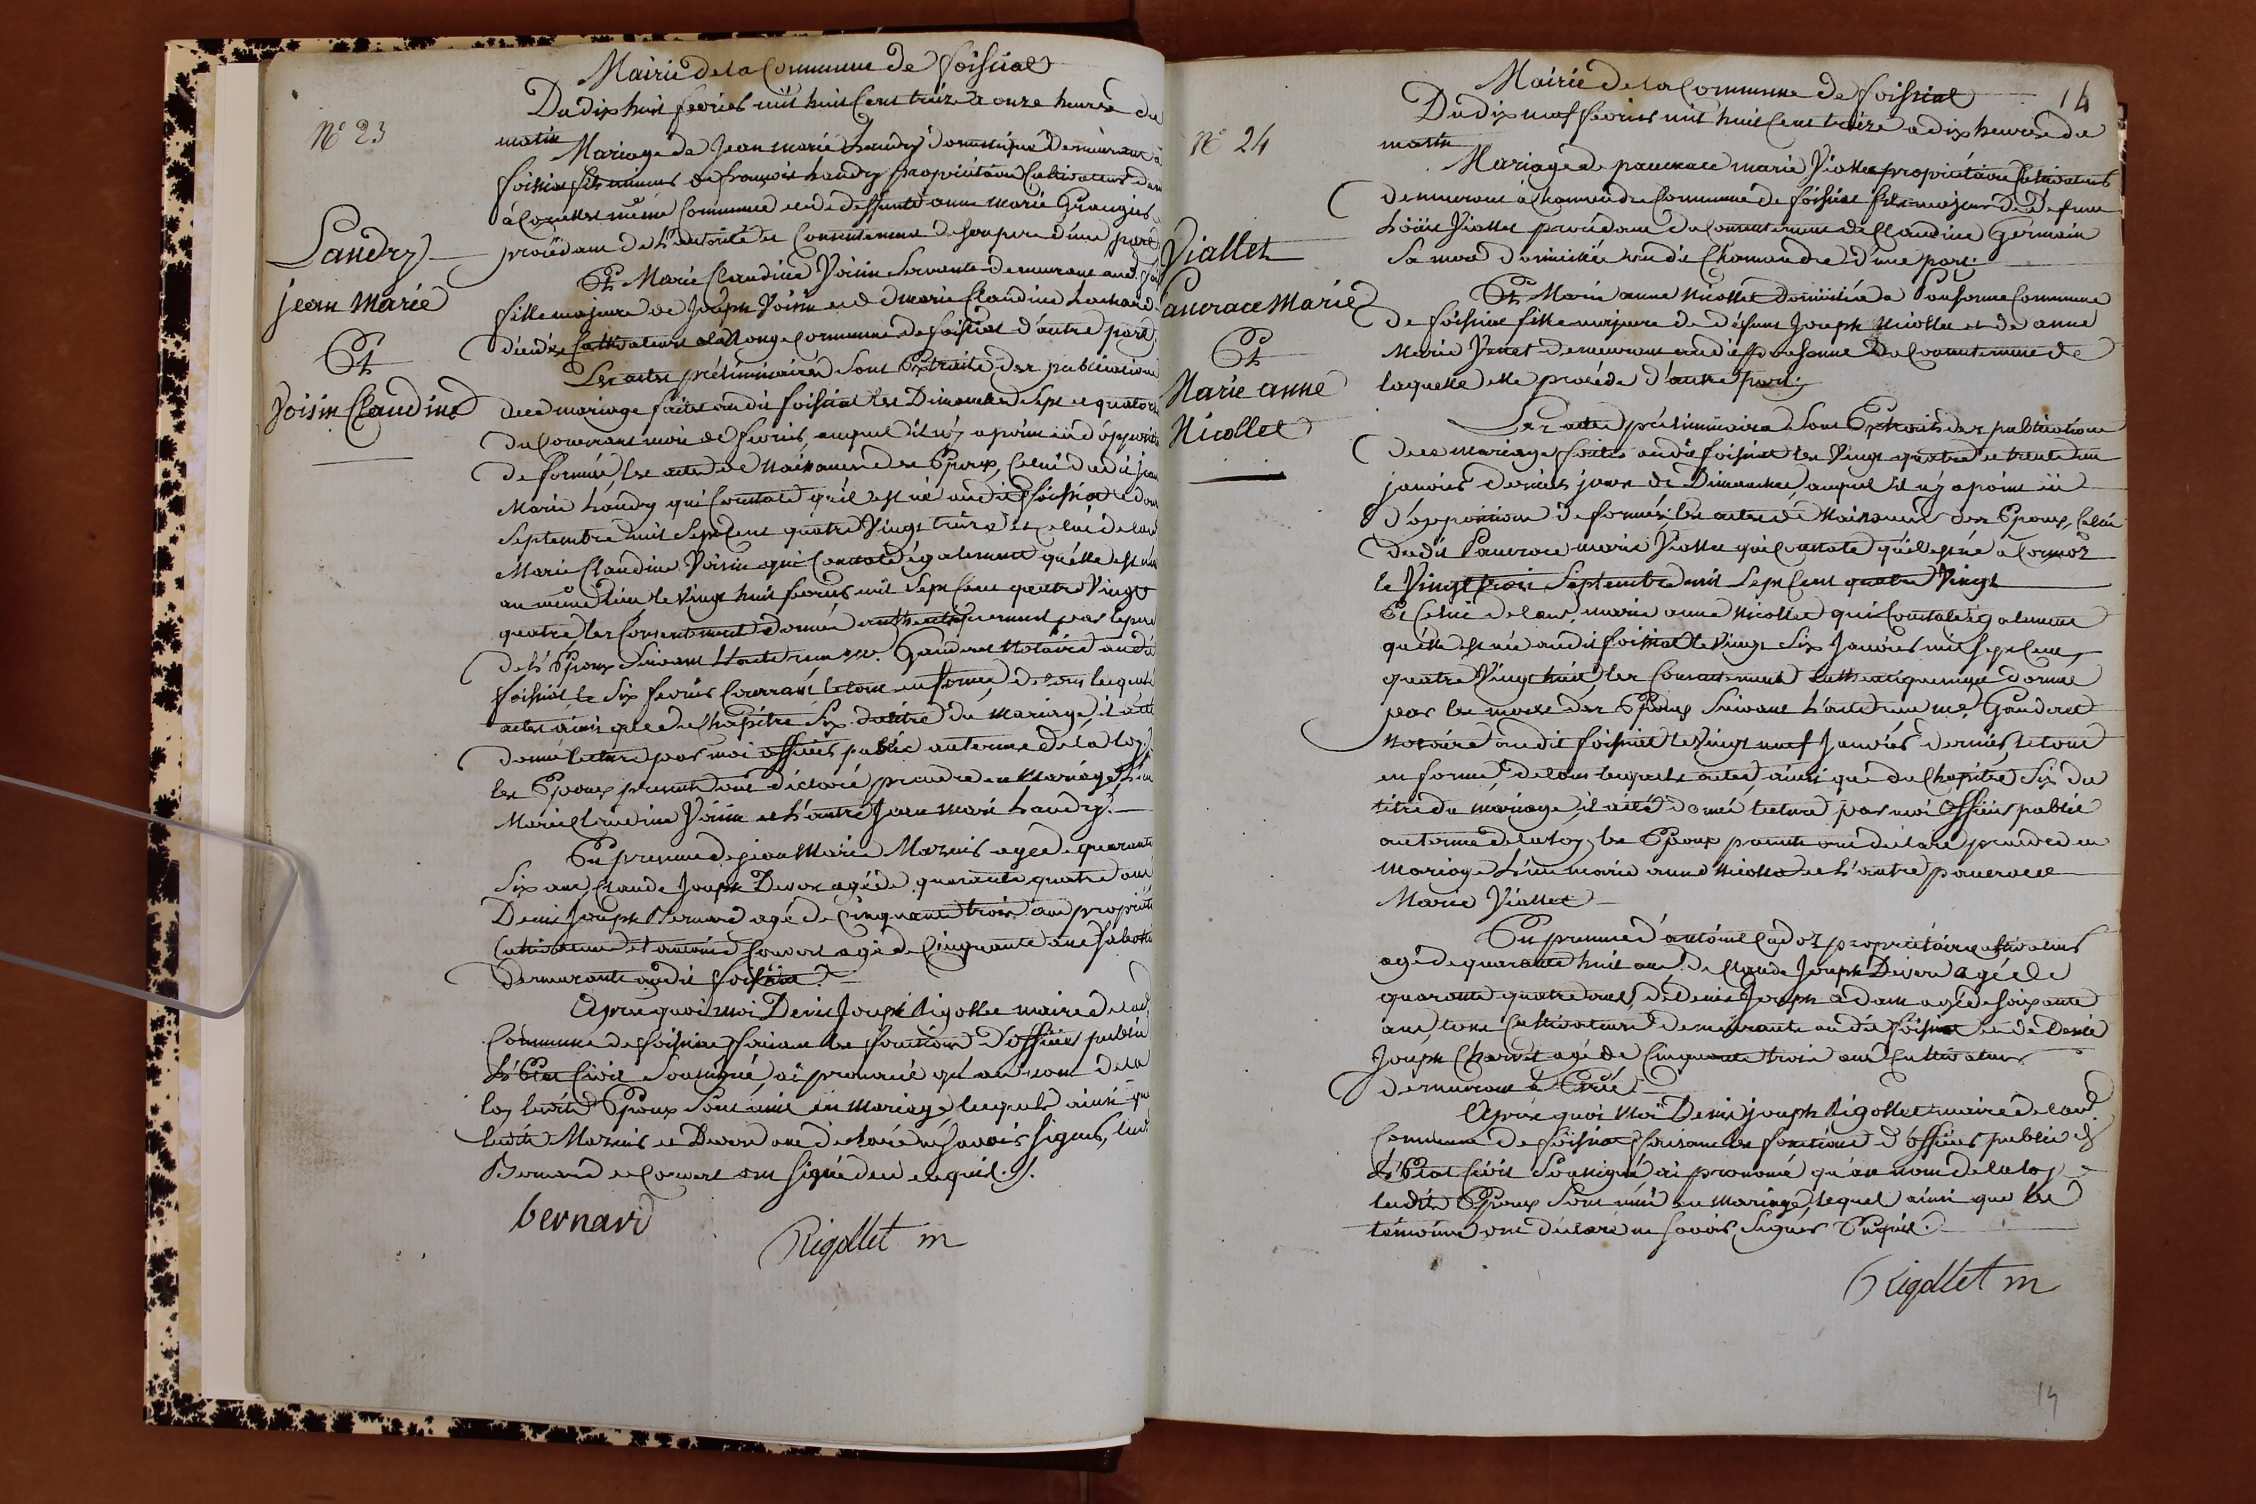 Mairie de la Commune de Foissiat
Du dix huit fevrier mil huit Cent treize a onze heures du
matin
N° 23
Mariage de Jean marie Landry domestique demeurant à
foissiat fils mineur de françois Landry propriétaire Cultivateur dem
à même Commune et de deffunte anne marie Grangier
Landry
procédant de L'autorité et Consentement de son pere d'une part
Et Marie Claudine Voisin Servante demeurant aud. foi
jean Marie
fille majeure de Joseph Voisin et de marie Claudine
Et
Cultivateurs commune de foissiat d'autre part.
Les actes préliminaires Sont Extraits des publications
Voisin Claudine
de ce mariage faites audit foissiat les Dimanches Sept et quatorze
du Courrant mois de fevrier, auquel il n'y a point eü d'oppositi
de formée, les actes de Naissances des Epoux, Celui dudit jean
Marie Landry qui Constate qu'il est né audit foissiat le dou
Septembre mil Sept Cent quatre Vingt treize et celui de lad
Marie Claudine Voisin qui Constate également quélle est née
au même lieu le vingt huit fevrier mil Sept Cent quatre Vingt
quatre, les Consentement donné authentiquement par le pere
de L'Epoux Suivant L'acte reçu Me. Gauderet Notaire audit
foissiat, le Six fevrier Courrant, le tout en forme, de tous lesquels
actes ainsi que du Chapitre Six du titre du Mariage, il a été
donné lecture par moi officier public au terme de la loy,
les Epoux presents ont déclaré prendre en Mariage, L'un
Marie Claudine Voisin et L'autre Jean Marie Landry.
En presence de jean Marie Mazuis agé de quarante
Six ans, Claude Joseph Devon agé de quarante quatre ans
Denis Joseph Bernard agé de Cinquante trois ans propriét
Cultivateurs et antoine Convert agé de Cinquante ans Sabotie
demeurants audit foissiat.
Après quoi moi Denis Joseph Rigollet maire de lad
Commune de foissiat faisant les fonctions d'officier public
L'Etat Civil Soussigné, ai prononcé qu'au nom de la
loy lesdits Epoux Sont unis en mariage, lesquels ainsi que
lesdits Mazuis et Devon ont déclaré ne Savoir Signer, lesd
Bernard et Convert ont Signé de ce enquis.
bernard
Rigollet m
Mairie de la Commune de Foissiat
14
Du dix neuf fevrier mil huit Cent treize a dix heures du
matin
N° 24
Mariage de pancrace marie Viallet propriétaire Cultivateur
demeurant à Chamandre Commune de foissiat fils majeur de defunt
Viallet procédant du Consentement de Claudine Germain
Viallet
Sa mere Domiciliée audit Chamandre d'une part.
Pancrace Marie
Et Marie anne Nicollet Domiciliée a Commune
de foissiat fille majeure de défunt Joseph Nicollet et de anne
Et
Marie demeurant audit du Consentement de
Marie anne
laquelle elle procéde d'autre part.
Nicollet
Les actes préliminaires Sont Extraits des publications
de ce mariage faites audit foissiat les Vingt quatre et trente un
janvier dernier jours de Dimanches, auquel il n'y a point eü
d'opposition de formée: les actes de Naissances des Epoux, Celui
dudit Pancrace marie Viallet qui Constate qu'il est né a Cormoz
le Vingt trois Septembre mil Sept Cent quatre Vingt
Et Celui de lad. marie anne Nicollet qui Constate également
quélle est née audit foissiat le Vingt Six Janvier mil Sept Cent
quatre Vingt huit, les Consentement authentiquement donné
par les meres des Epoux Suivant L'acte reçu Me. Gauderet
Notaire audit foissiat le Vingt neuf Janvier dernier, le tout
en forme, de tous lesquels actes, ainsi que du Chapitre Six du
titre du mariage, il a été donné lecture par moi officier public
au terme de la loy, les Epoux presents ont déclaré prendre en
Mariage L'un marie anne Nicollet et L'autre pancrace
Marie Viallet
En presence d'antoine Cadoz propriétaire Cultivateur
agé de quarante huit ans, de Claude Joseph Devon agé de
quarante quatre ans, de Denis Joseph adam agé de Soixante
ans, tous Cultivateurs demeurants audit foissiat et de Denis
Joseph Charvet agé de Cinquante trois ans Cultivateur
demeurant à Etrée
Après quoi Moi Denis joseph Rigollet maire de lad.
Commune de foissiat faisant les fonctions d'officier public de
L'Etat Civil Soussigné, ai prononcé qu'au nom de la loy
lesdits Epoux Sont unis en mariage, lequel ainsi que les
témoins ont déclaré ne Savoir Signer Enquis.
Rigollet m
14